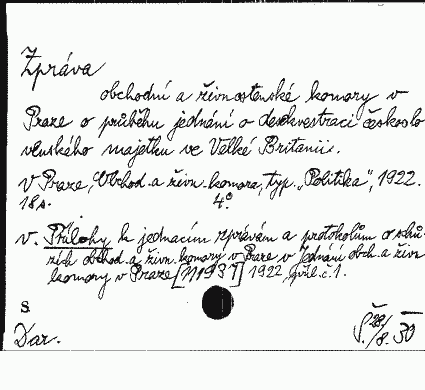 Zpráva
obchodní a živnostenské komory v
Praze o průběhu jednání o desekvestraci českoslo
venského majetku ve Velké Britanii.
V Praze, Obchod. a živn. komora, typ. „Politika“, 1922.
18 s. 4°
v. Přílohy k jednacím zprávám a protokolům o schů-
zích obchod. a živn. komory v Praze v Jednání obch. a živn
komory v Praze [N1937] 1922, příl. č. 1.
S
Dar.
30